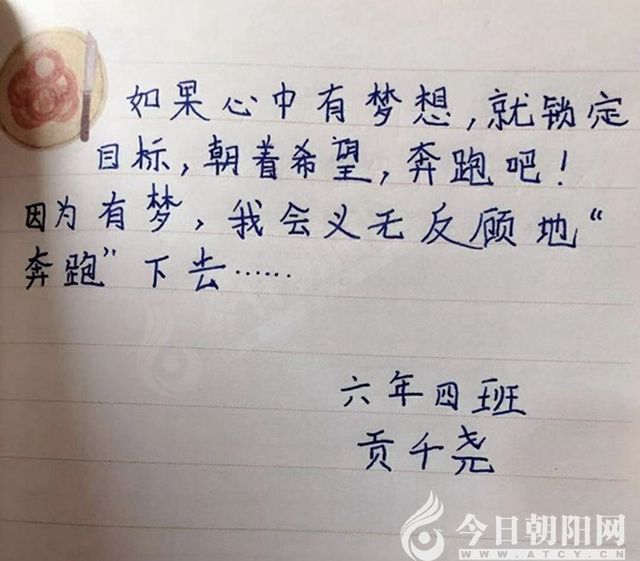 如果心中有梦想,就锁定
目标,朝着希望,奔跑吧!
因为有梦,我会义无反顾地“
奔跑”下去……
六年四班
贡千尧
今日朝阳网
WWW.ATCY.CN